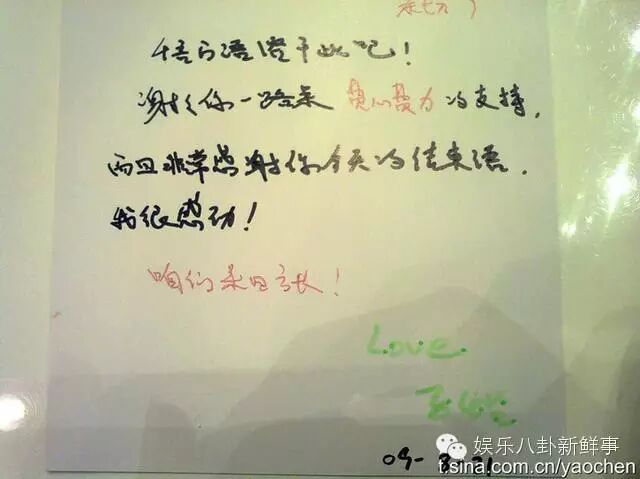 语 于此吧!
谢谢你一路来 费心费力的支持,
而且非常感谢你今天的结束语,
我很感动!
咱们来日方长!
Love.
娱乐八卦新鲜事
t.sina.com.cn/yaochen